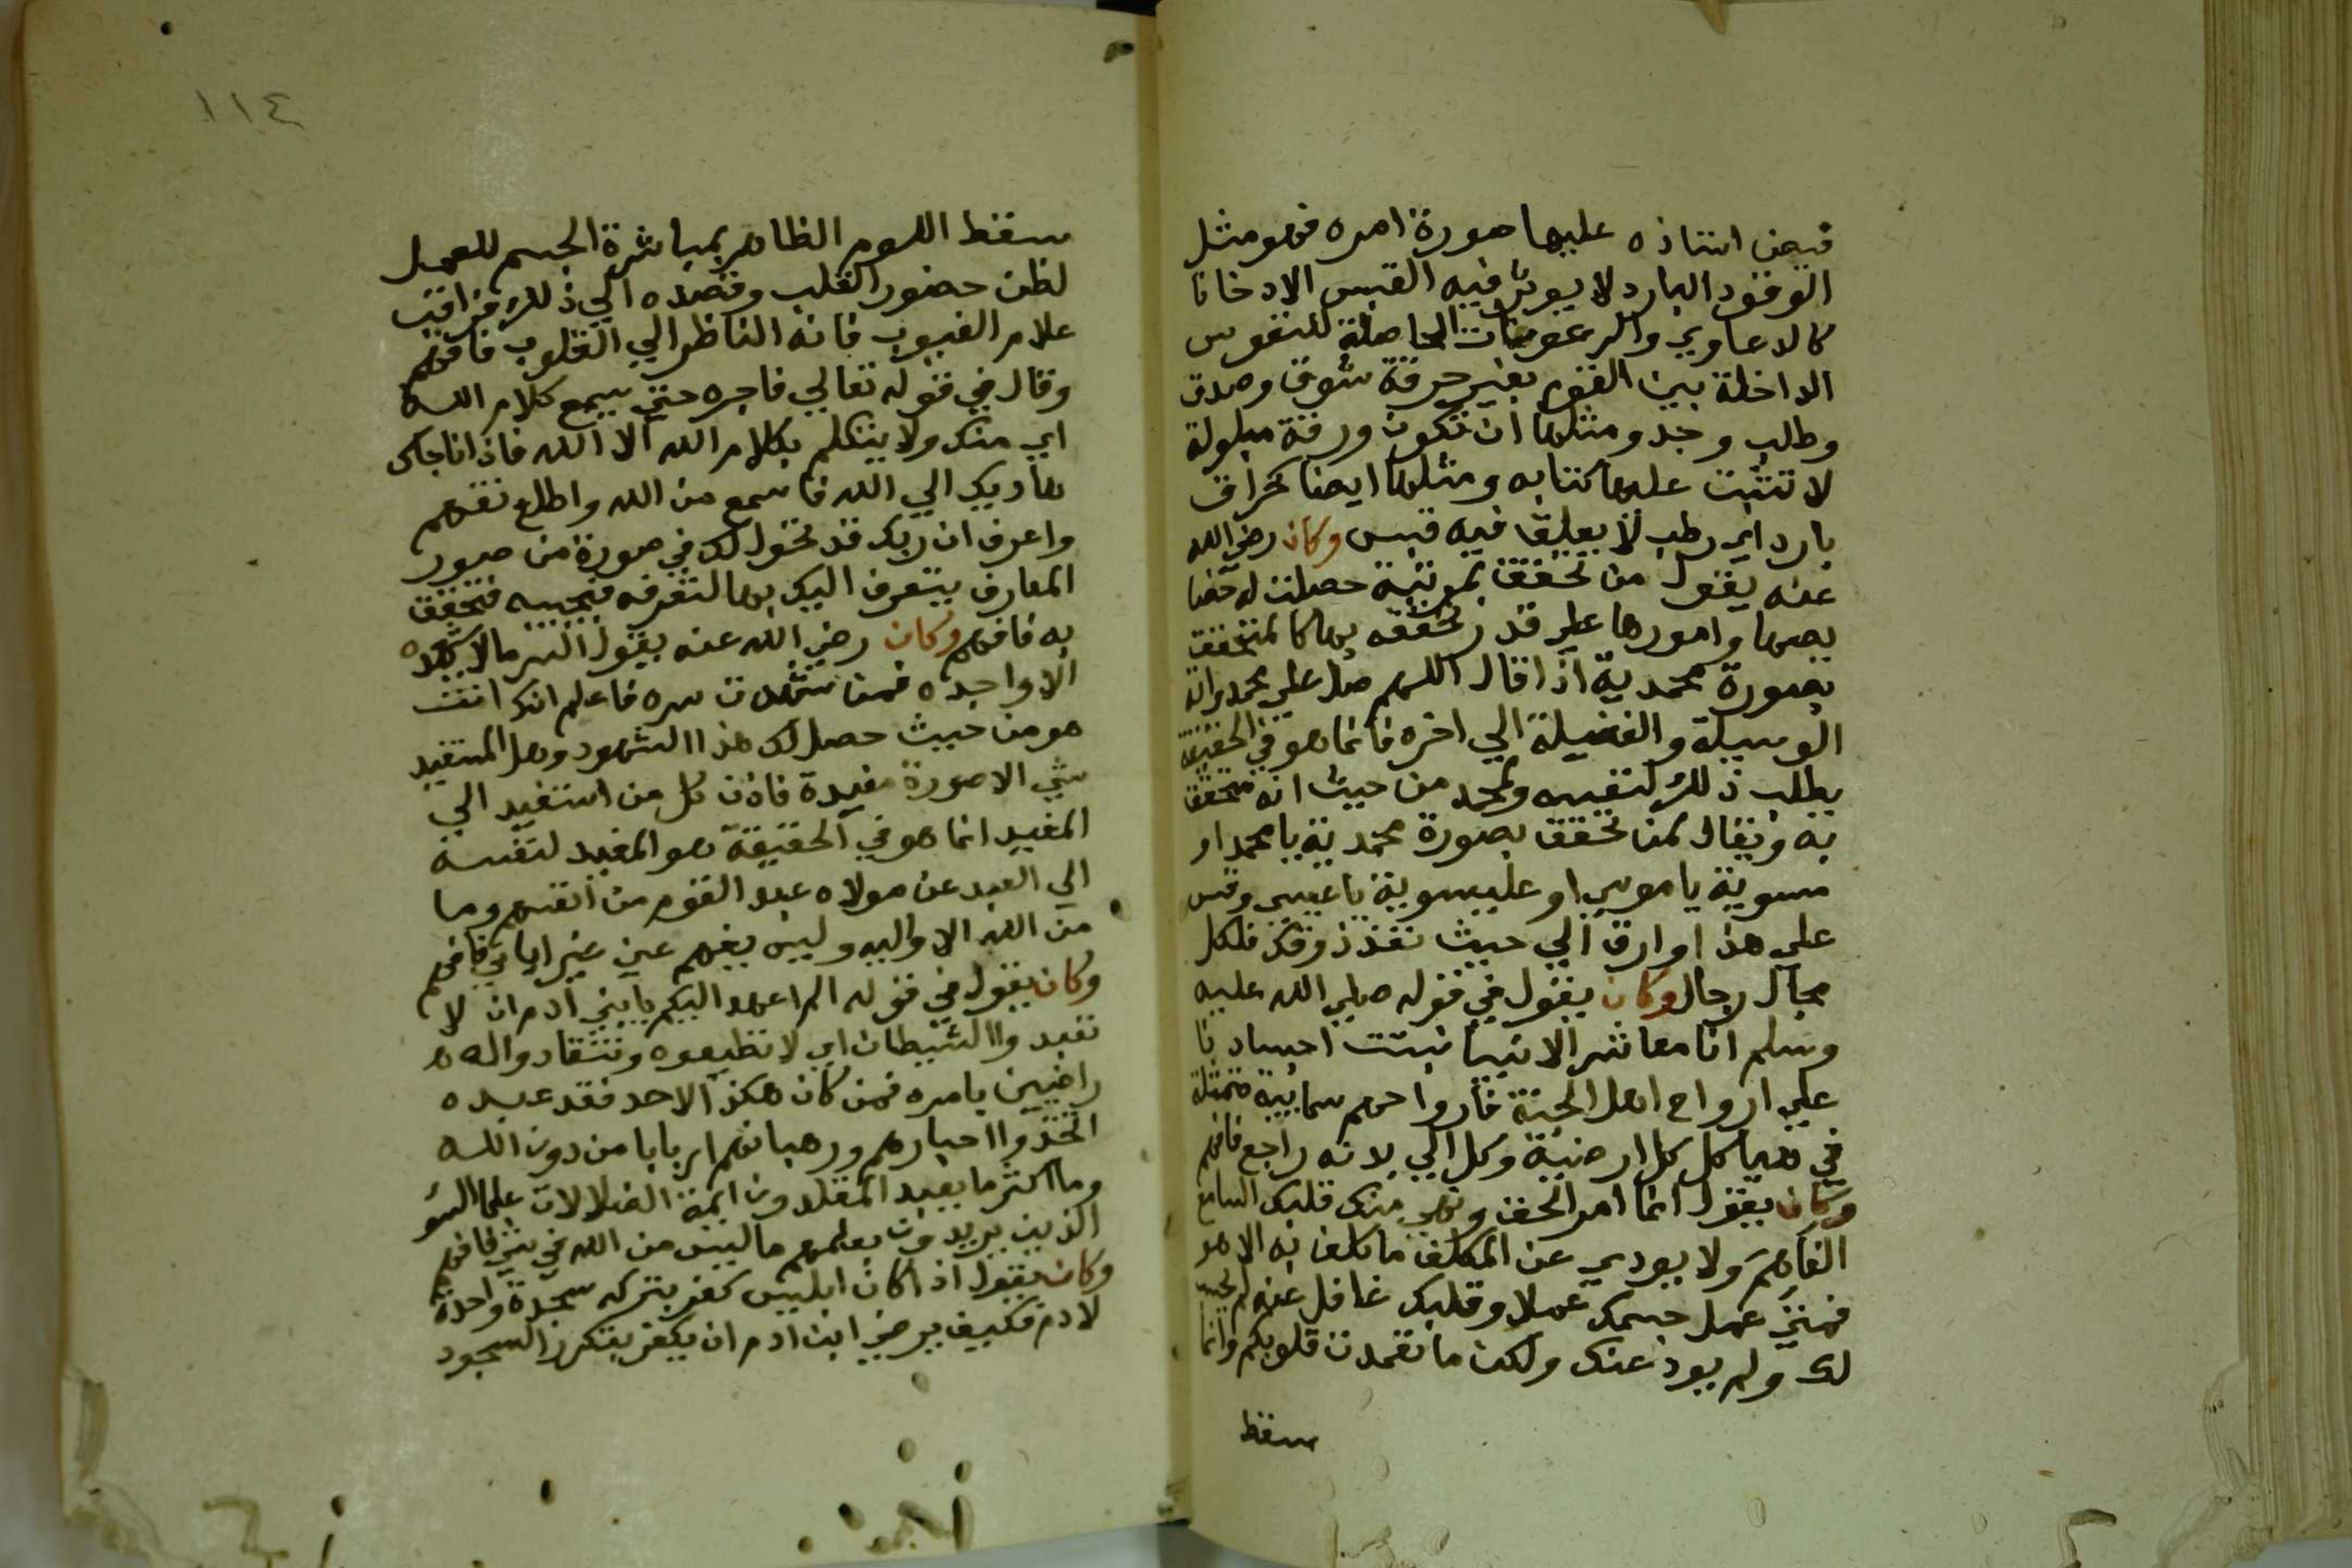 قبض استاذه عليها صورة امره فهو مثل
الوقود البارد لا يوثر فيه القبس الا دخانا
كالدعاوي والرعونات الحاصلة للنفوس
الداخلة بين القوم بغير حرقة شوق وصدق
وطلب وجد ومثلها ان تكون ورقة مبلولة
لا تثبت عليها كتابه ومثلها ايضا كحراق
بارد اي رطب لا يعلق فيه قبس وكان رضي الله
عنه يقول من تحقق بمرتبة حصلت له خصا
يصها وامورها علي قدر تحققه بها كالمتحقق
بصورة محمدية اذا قال اللهم صل علي محمد واته
الوسيلة والفضيلة الي اخره فانما هو في الحقيقة
يطلب ذلك لنفسه ولمحمد من حيث انه متحقق
به ويقال لمن تحقق بصورة محمدية يا محمد او
مسوية يا موسي او عليسوية يا عيسي وقس
علي هذا او ارق الي حيث نفذ ذوقك فلكل
مجال رجال وكان يقول في قوله صلي الله عليه
وسلم انا معاشر الانبيا نبتت اجسادنا
علي ارواح اهل الجنة فارواحهم سمايية متمثلة
في هياكل كل ارضية وكل الي بدئه راجع فافهم
وكان يقول انما امر الحق ونهي منك قلبك السامع
الفاهم ولا يودي عن المكلف ما كلف به الا هو
فمتي عمل جسمك عملا وقلبك غافل عنه لم يحسب
لك ولم يود عنك ولكن ما تعمدت قلوبكم وانما
سقط
١١٤
سقط اللوم الظاهر بمباشرة الجسم للعمل
لظن حضور القلب وقصده الي ذلك فراقب
علام الغيوب فانه الناظر الي القلوب فافهم
وقال في قوله تعالي فاجره حتي يسمع كلام الله
اي منك ولا يتكلم بكلام الله الا الله فاذا ناجاك
هاديك الي الله فاسمع من الله واطلع تفهم
واعرف ان ربك قد تحول لك في صورة من صور
المعارف يتعرف اليك بها لتعرفه فتجيبه فتحقق
به فافهم وكان رضي الله عنه يقول السر ما لا يشهده
الا واجده فمن شهدت سره فاعلم انك انت
هو من حيث حصل لك هذا الشهود وهل المستفيد
شي الا صورة مفيدة فاذن كل من استفيد الي
المفيد انما هو في الحقيقة هو المفيد لنفسه
الي العبد عن مولاه عبد القوم من انفسهم وما
من الله الا واليه وليس يفهم عني غير اياي فافهم
وكان يقول في قوله الم اعهد اليكم يا بني ادم ان لا
تعبدوا الشيطان اي لا تطيعوه وتنقادوا له
راضين بامره فمن كان هكذا لاحد فقد عبده
اتخذوا احبارهم ورهبانهم اربابا من دون الله
وما اكثر ما يعبد المقلدون ايمة الضلالات علما السو
الذين يريدون بعلمهم ما ليس من الله في شي فافهم
وكان يقول اذا كان ابليس كفر بتركه سجدة واحدة
لادم فكيف يرضي ابن ادم ان يكفر بتكرر السجود